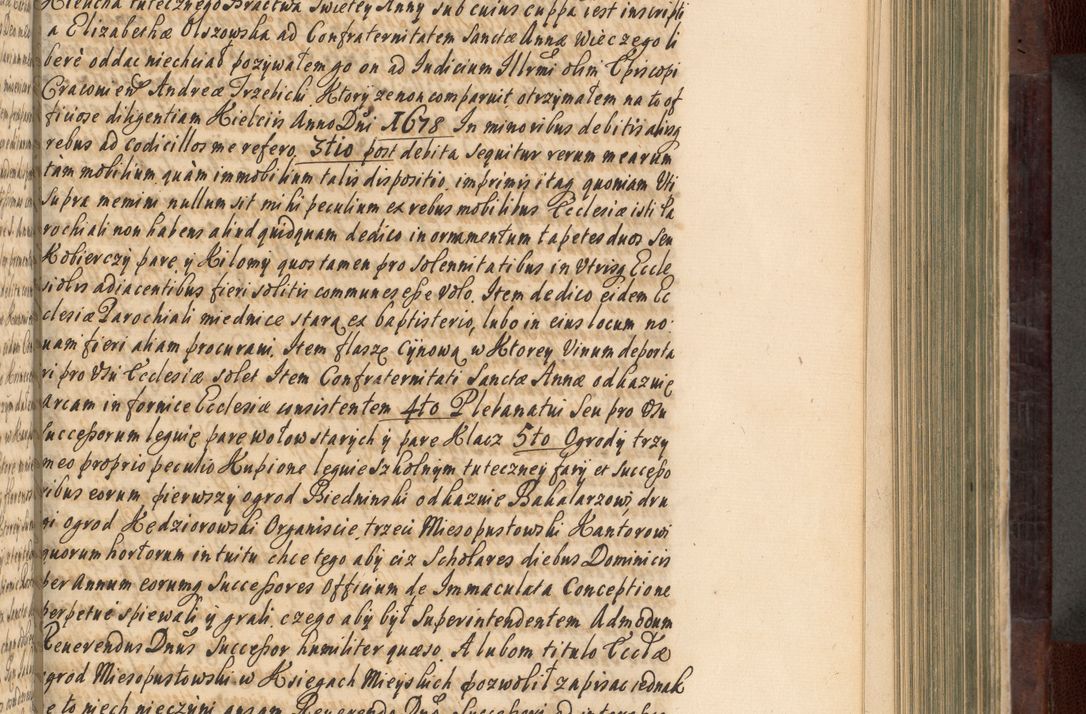 Kielicha tutecznego Bractwa Swietey Anny sub cuius cuppa iest inscripti
a Elizabethæ Olszowska ad Confraternitatem Sanctæ Annæ wieczego li
bere oddac niechciał pozywałem go on ad Iudicium Illrmi olim Episcopi
Andreæ Trzebicki Ktory ze non comparuit otrzymałem na to of
ficiose diligentiam Kielciis Anno Dni 1678 In minoribus debitis aliisq
rebus ad codicillos me refero. 3tio post debita sequitur rerum mearum
tàm mobilium quàm immobilium talis dispositio, imprimis itaq quoniam Uti
Supra memini nullum sit mihi peculium ex rebus mobilibus Ecclesiæ isti Pa
rochiali non habens aliud quidquam dedico in ornamentum tapetes duos seu
Kobierczy parę y Kilomy quos tamen pro solennitatibus in Utrisq Eccle
siolis adiacentibus fieri solitis communes esse volo. Item dedico eidem Ec
clesiæ Parochiali miednice stara ex baptisterio, lubo in eius locum no
uam fieri aliam procuraui. Item flaszę Cynową w Ktorey Vinum deporta
ri pro Usu Ecclesiæ solet Item Confraternitati Sanctæ Annæ odkazuię
arcam in fornice Ecclesiæ consistentem 4to Plebanatui seu pro Usu
successorum leguię parę wołow starych y parę Klacz 5to Ogrody trzy
meo proprio peculio Kupione leguie szkolnym tuteczney fary et successo
ribus eorum, pierwszy ogrod Biedninski odkazuię Bakalarzowi, dru
gi ogrod Kędziorowski Organiscie, trzeci Miesopustowski Kantorowi
quorum hortorum intuitu chce tego aby ciz Scholares diebus Dominicis
per Annum eorumq Successores Officium de Immaculata Conceptione
perpetuè spiewali y grali. czego aby był Superintendentem Admodum
Reuerendus Dnus Successor humiliter quæso. A lubom titulo Ecclæ
ogrod Miesopustowski w Księgach Mieyskich pozwolił zapisac iednak